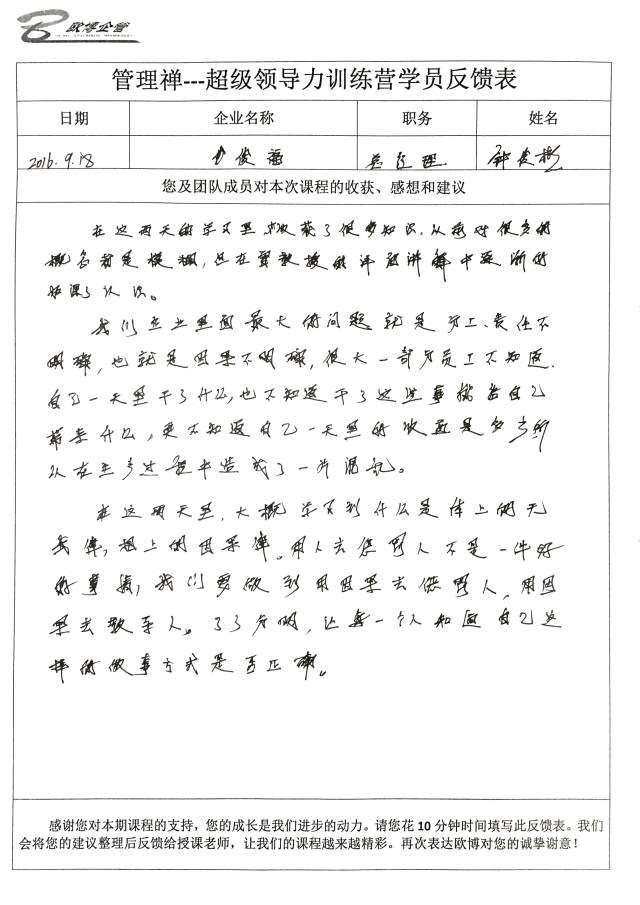 欧博企管
管理禅---超级领导力训练营学员反馈表
日期 企业名称 职务 姓名
2016.9.18 俊福 总经理 钟
您及团队成员对本次课程的收获、感想和建议
在这两天的学习里收获了很多知识,从前对很多的
概念都是模糊,但在曾教授的讲解中逐渐的
加深了认识。
我们企业里面最大的问题就是分工、责任不
明确,也就是因果不明确,很大一部分员工不知道
自己一天里干了什么,也不知道干了这些事接着自己
带来什么,更不知道自己一天里的收益是多少所
以在生产过程中造成了一片混乱。
在这两天里,大概学习到什么是体上的无
我律,相上的因果律。用人去管别人不是一件好
的事情,我们要做到用因果去管别人,用因
果去教育人。了了分明,让每一个人知道自己这
样的做事方式是否正确。
感谢您对本期课程的支持,您的成长是我们进步的动力。请您花 10 分钟时间填写此反馈表。我们
会将您的建议整理后反馈给授课老师,让我们的课程越来越精彩。再次表达欧博对您的诚挚谢意!